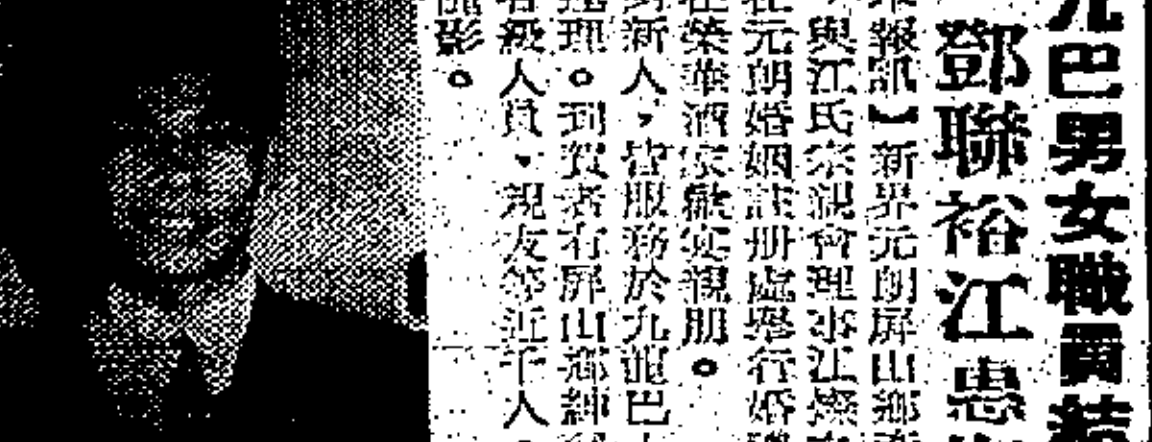 九巴男女職員結
鄧聯裕江惠
報訊】新界元朗屏山鄉
與江氏宗親會理事江燦
在元朗婚姻註册處舉行婚
在榮華酒家歡宴親朋。
新人，皆服務於九龍巴
理。到賀者有屏山鄉紳
各級人員，親友等近千人
影。